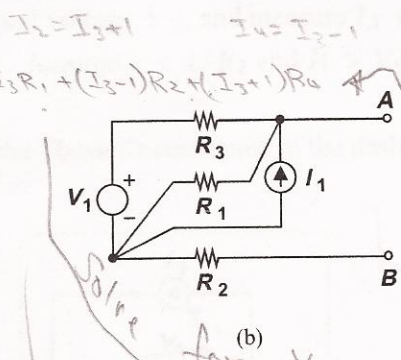 I₂=I₃+1 I₄=I₃-1
I₃R₁+(I₃-1)R₂+(I₃+1)R₄
A
R₃
V₁ + R₁ I₁
−
R₂ B
Solve
(b)